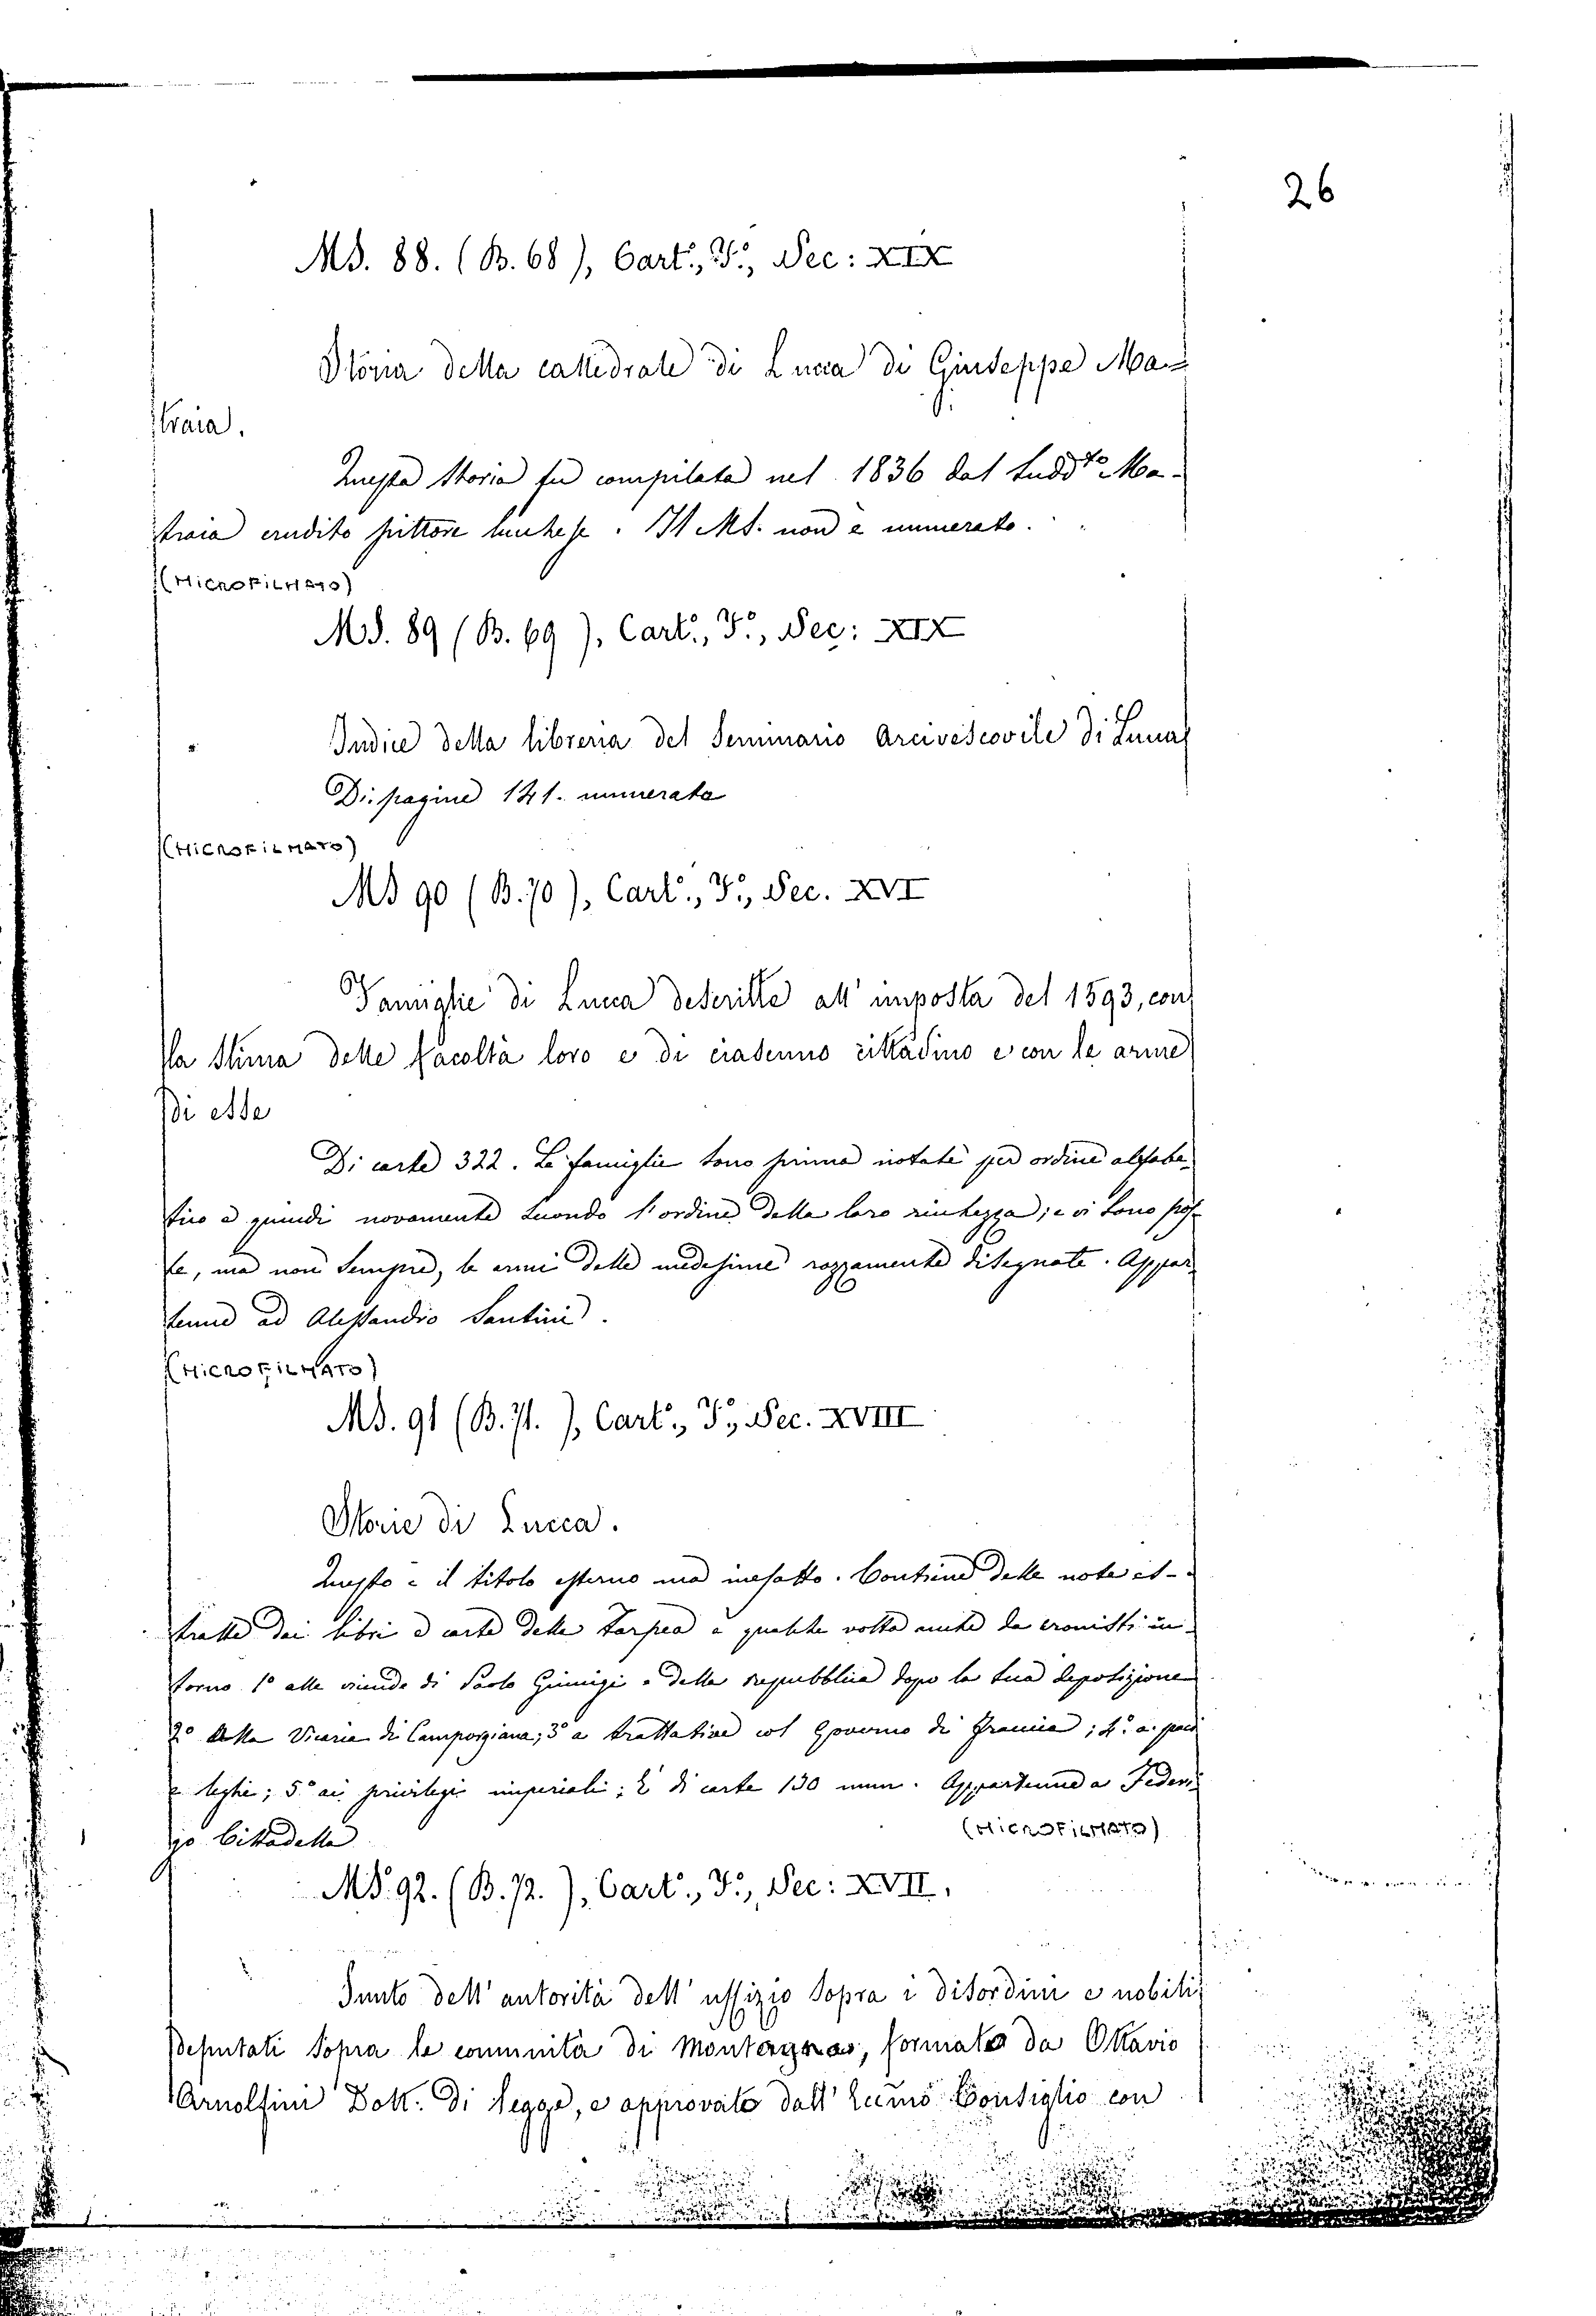 26
Ms. 88. (B. 68), Cart:, F:, Sec: XIX
Storia della cattedrale di Lucca di Giuseppe Ma-
traia.
Questa storia fu compilata nel 1836 dal sudd.to Ma-
traia erudito pittore lucchese. Il Ms. non è numerato.
(MICROFILMATO)
Ms. 89 (B. 69), Cart:, F:, Sec: XIX
Indice della libreria del Seminario Arcivescovile di Lucca
Di pagine 141. numerate
(MICROFILMATO)
Ms 90 (B. 70), Cart:, F:, Sec. XVI
Famiglie di Lucca descritte all' imposta del 1593, con
la stima delle facoltà loro e di ciascuno cittadino e con le arme
di esse
Di carte 322. Le famiglie sono prima notate per ordine alfabe-
tico e quindi novamente secondo l'ordine della loro ricchezza; e vi sono pos-
te, ma non sempre, le armi delle medesime rozzamente disegnate. Appar-
tenne ad Alessandro Santini.
(MICROFILMATO)
Ms. 91 (B. 71.), Cart:, F:, Sec. XVIII
Storie di Lucca.
Questo è il titolo esterno ma inesatto. Contiene delle note es-
tratte dai libri e carte della Tarpea e qualche volta anche da cronisti in-
torno 1º alle vicende di Paolo Guinigi e della repubblica dopo la sua deposizione
2º della Vicaria di Camporgiana; 3º a trattative col Governo di Francia; 4º a paci
e leghe; 5º ai privilegi imperiali; È di carte 130 num. Appartenne a Federi-
go Cittadella
(MICROFILMATO)
Ms. 92. (B. 72.), Cart:, F:, Sec: XVII.
Sunto dell' autorità dell' uffizio sopra i disordini e nobili
deputati sopra le comunità di Montagna, formato da Ottavio
Arnolfini Dott. di legge, e approvato dall' Ecc.mo Consiglio con